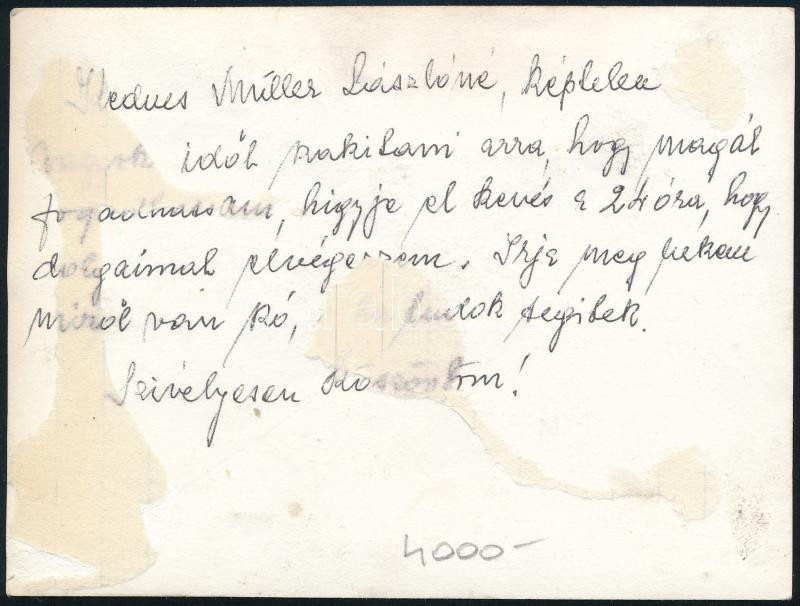 Kedves Müller Lászlóné, képtelen
vagyok időt szakitani arra, hogy magát
fogadhassam, higyje el kevés a 24 óra, hogy
dolgaimat elvégezzem. Irja meg nekem
miről van szó, tudok segitek.
Szivélyesen Köszöntöm!
4000-